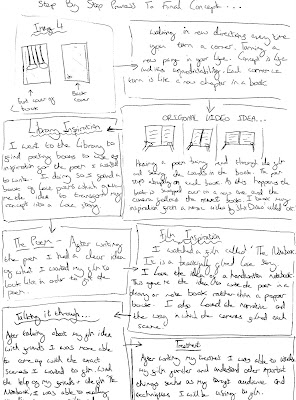 Step By Step Process To Final Concept...
Image 4
front cover of
book
Book
cover
walking in new directions every time
you turn a corner. Turning a
new page in your life. Concept is like
Each corner we
turn is like a new chapter in a book
Library Inspiration
I went to the library to
find poetry books to use as
inspiration for the poem I wanted
to write. In doing so I found a
book of love poets which
me the idea to
concept into a love story.
ORIGIONAL VIDEO IDEA...
Hearing a poem being read through the film
and seeing the words in the book. The poem
on each book. As this happens the
book is swapped over in a new location and the
camera follows the book. I took my
inspiration from a music video by
The Poem - After writing
the poem I had a clear idea
of what I wanted my film to
look like in order to fit the
poem.
Film Inspiration
I watched a film called 'The Notebook'.
It is a beautifully love story.
I love the idea of a handwritten notebook.
This gave me the idea to write the poem in a
diary or note book rather than a proper
book. I also loved the narration and
the way in which the camera filmed each
scene.
Talking it through...
After talking about my film idea
with friends I was more able
to come up with the exact
scenes I wanted to film. With
the help of my friends & the film 'The
Notebook', I was able to really
Treatment
After writing my treatment I was able to
my film and understand other important
things such as my target audience and
techniques I will be using to film.